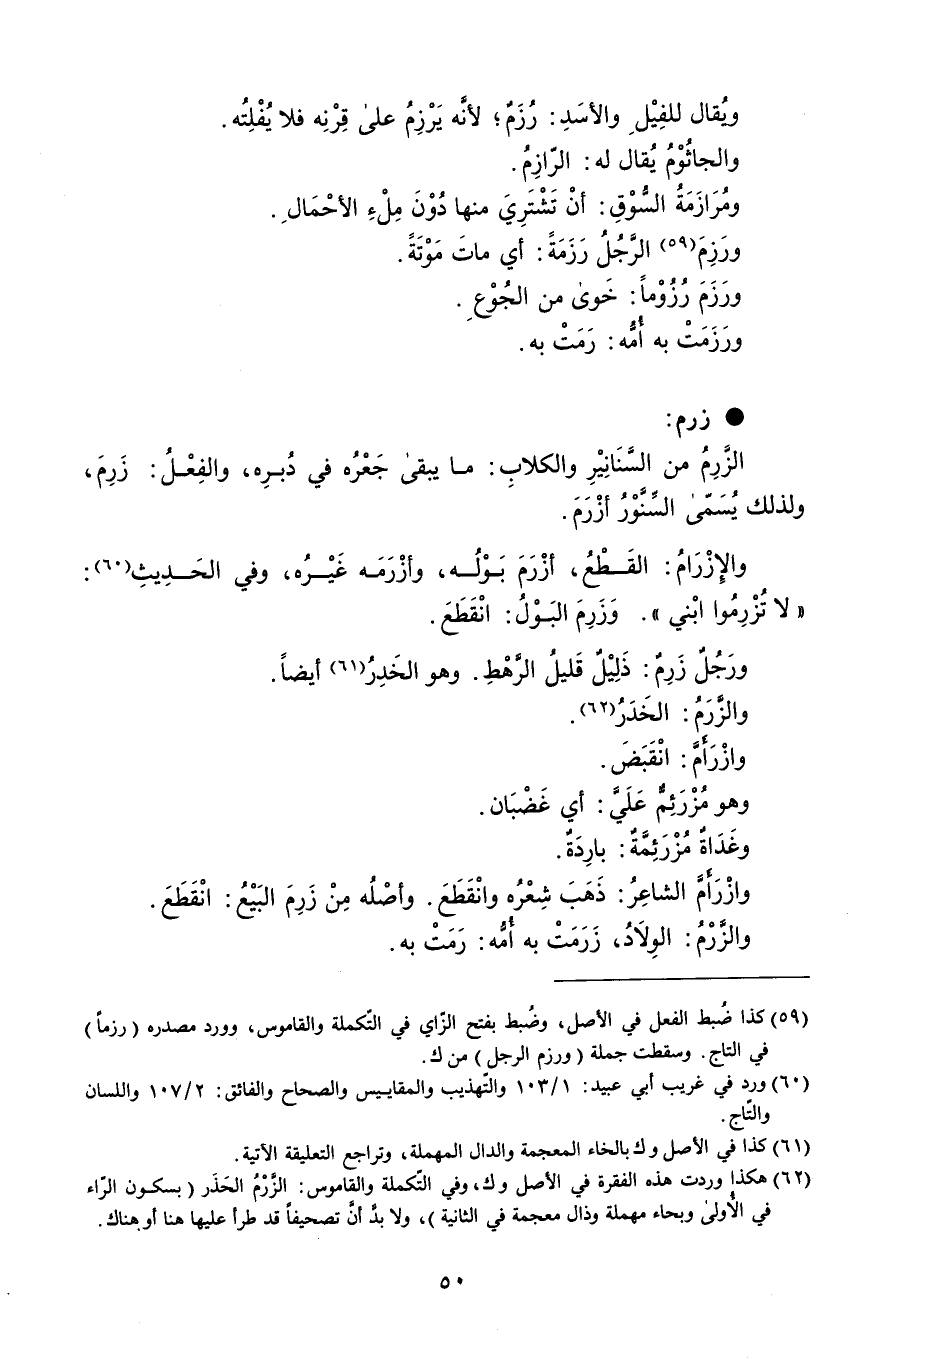 ويُقال للفِيْلِ والأسَدِ: رُزَمٌ؛ لأنَّه يَرْزِمُ علىٰ قِرْنِه فلا يُفْلِتُه.
والجاثُوْمُ يُقال له: الرّازِمُ.
ومُرَازَمَةُ السُّوْقِ: أنْ تَشْتَرِيَ منها دُوْنَ مِلْءِ الأحْمَالِ.
ورَزِمَ(٥٩) الرَّجُلُ رَزَمَةً: أي ماتَ مَوْتَةً.
ورَزَمَ رُزُوْماً: خَوىٰ من الجُوْعِ.
ورَزَمَتْ به أُمُّه: رَمَتْ به.
● زرم:
الزَّرِمُ من السَّنَانِيْرِ والكلابِ: ما يبقىٰ جَعْرُه في دُبرِه، والفِعْلُ: زَرِمَ،
ولذلك يُسَمّىٰ السِّنَّوْرُ أزْرَمَ.
والإِزْرَامُ: القَطْعُ، أزْرَمَ بَوْلُه، وأزْرَمَه غَيْرُه، وفي الحَديثِ(٦٠):
« لا تُزْرِمُوا ابْني ». وَزَرِمَ البَوْلُ: انْقَطَعَ.
ورَجُلٌ زَرِمٌ: ذَلِيْلٌ قَليلُ الرَّهْطِ. وهو الخَدِرُ(٦١) أيضاً.
والزَّرَمُ: الخَدَرُ(٦٢).
وازْرَأَمَّ: انْقَبَضَ.
وهو مُزْرَئِمٌّ عَلَيَّ: أي غَضْبَان.
وغَدَاةٌ مُزْرَئِمَّةٌ: بارِدَةٌ.
وازْرَأَمَّ الشاعِرُ: ذَهَبَ شِعْرُه وانْقَطَعَ. وأصْلُه مِنْ زَرِمَ البَيْعُ: انْقَطَعَ.
والزَّرْمُ: الوِلَادُ، زَرَمَتْ به أُمُّه: رَمَتْ به.
(٥٩) كذا ضُبط الفعل في الأصل، وضُبط بفتح الزّاي في التّكملة والقاموس، وورد مصدره ( رزماً )
في التاج. وسقطت جملة ( ورزم الرجل ) من ك.
(٦٠) ورد في غريب أبي عبيد: ١٠٣/١ والتّهذيب والمقاييس والصحاح والفائق: ١٠٧/٢ واللسان
والتّاج.
(٦١) كذا في الأصل وك بالخاء المعجمة والدال المهملة، وتراجع التعليقة الآتية.
(٦٢) هكذا وردت هذه الفقرة في الأصل وك، وفي التّكملة والقاموس: الزَّرْمُ الحَذَر ( بسكون الرّاء
في الأُولىٰ وبحاء مهملة وذال معجمة في الثانية )، ولا بدَّ أنَّ تصحيفاً قد طرأ عليها هنا أو هناك.
٥٠